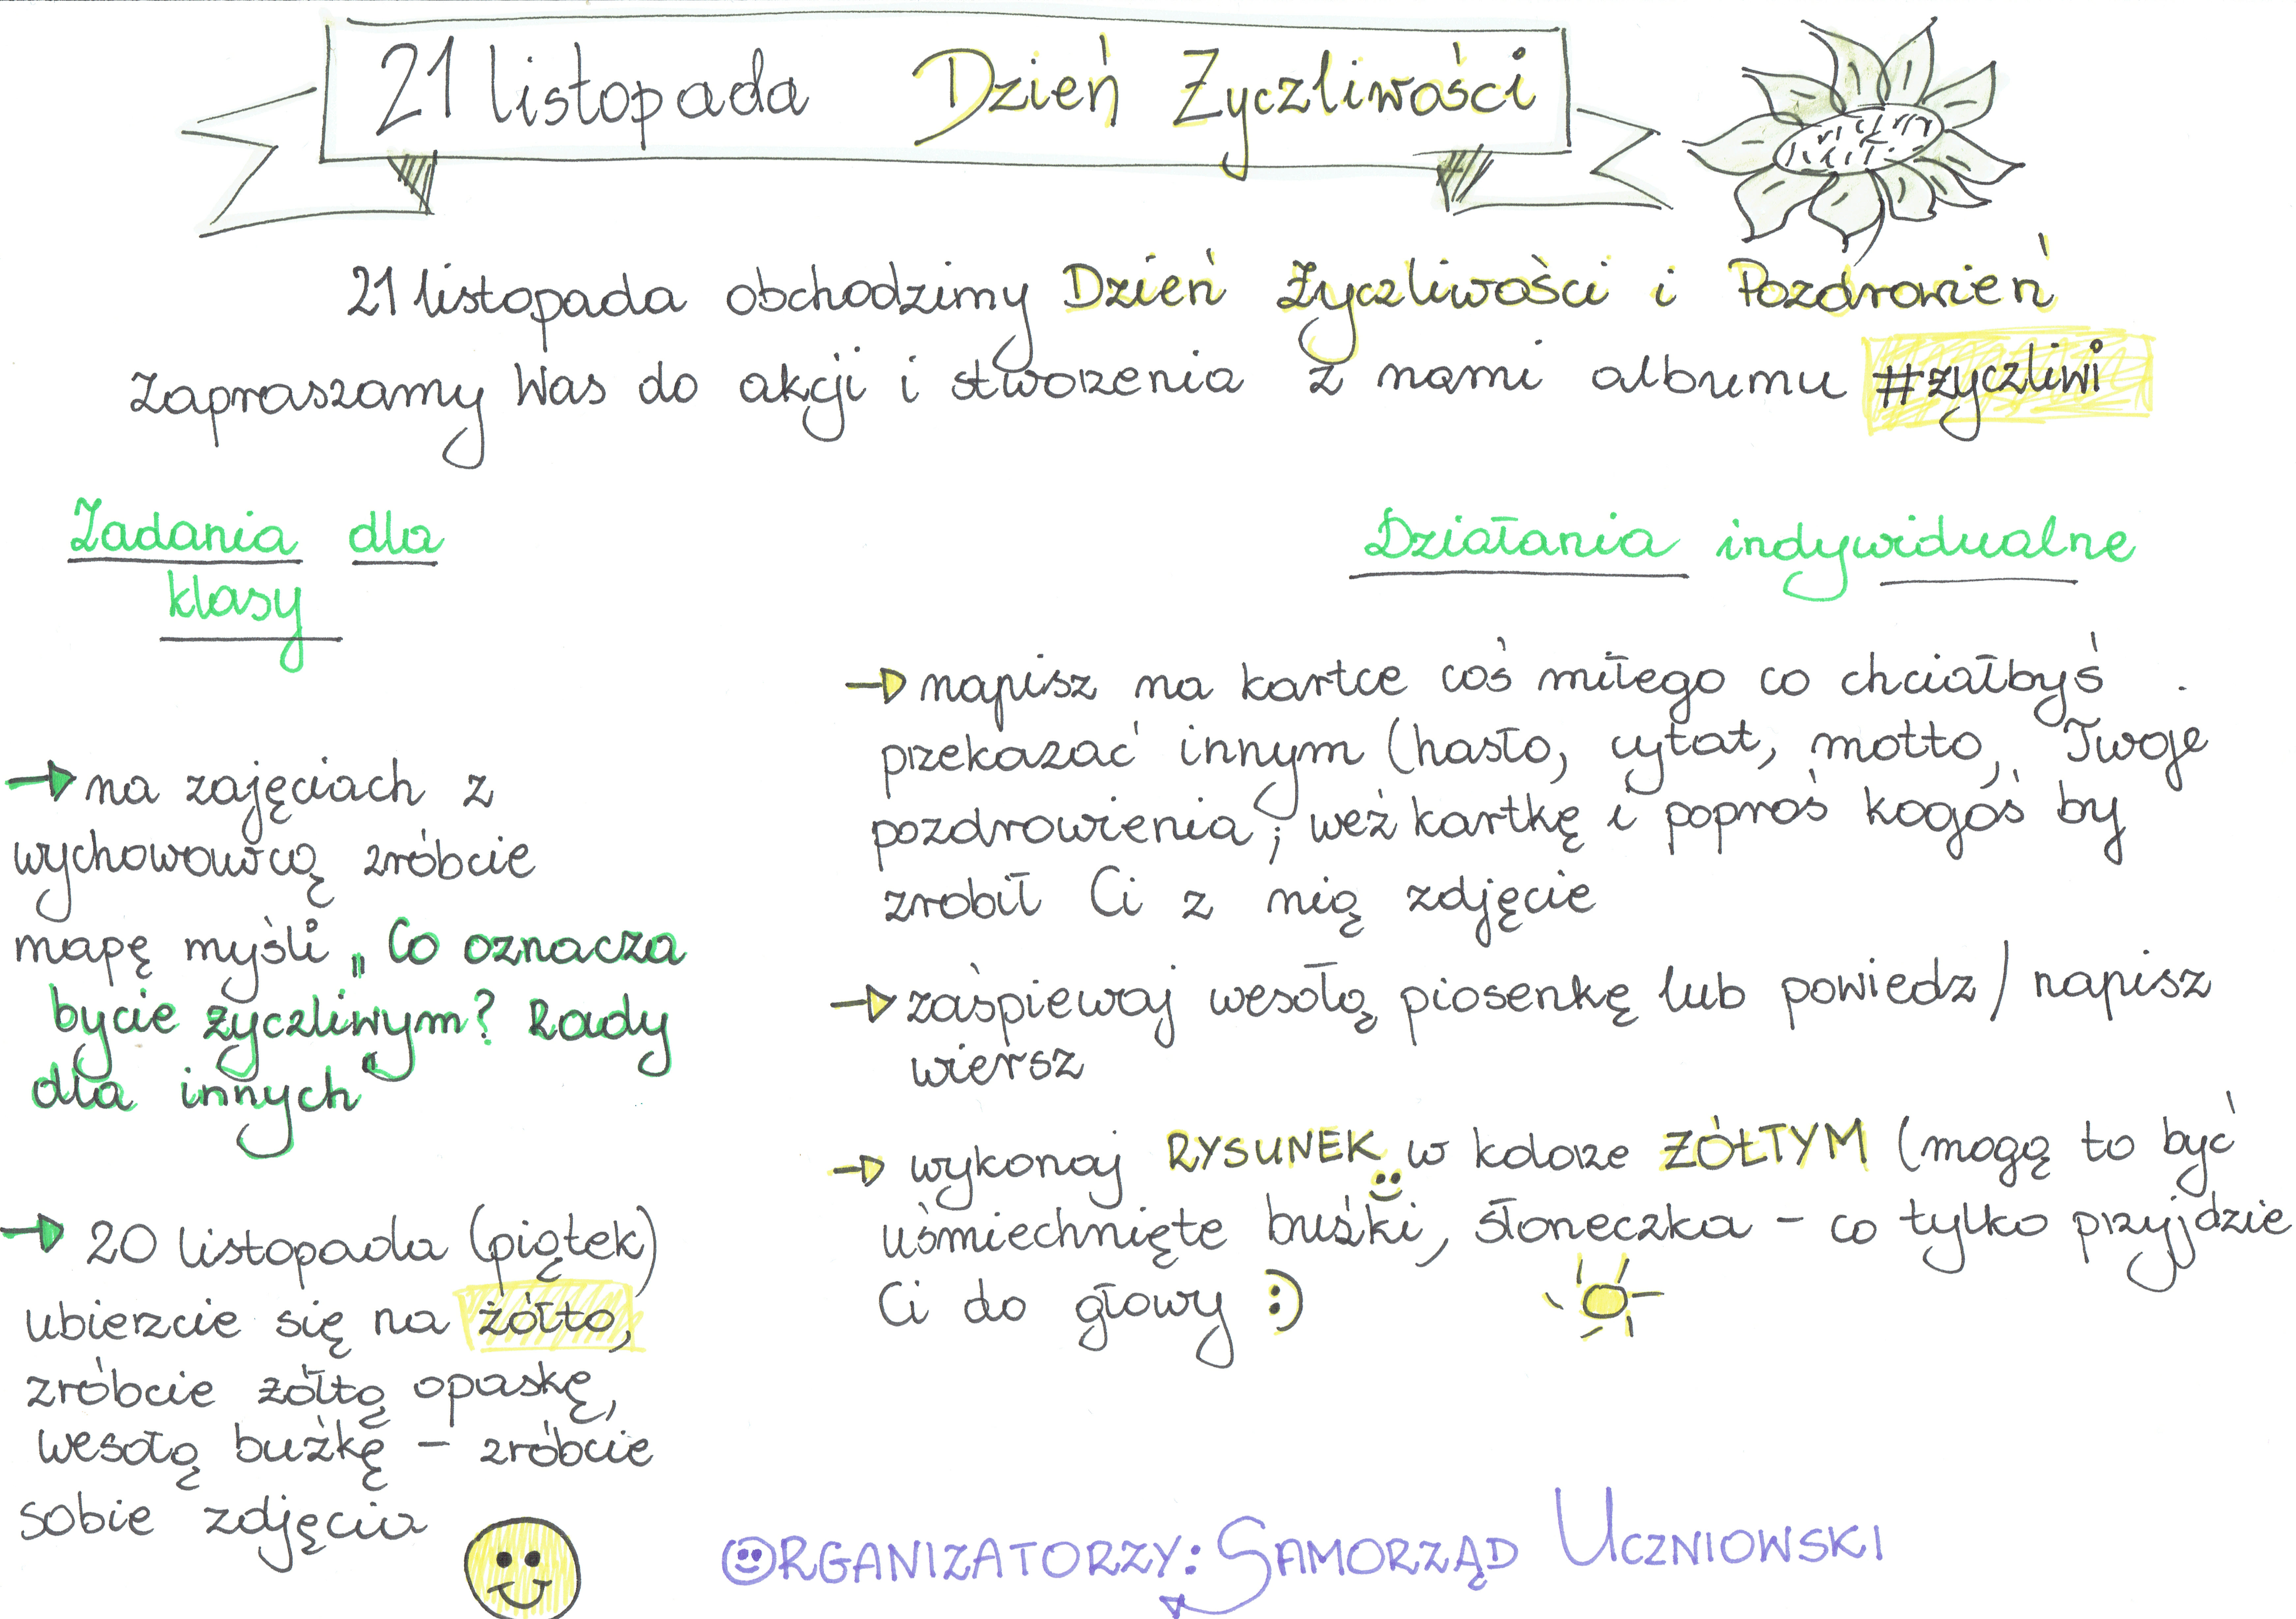 21 listopada Dzień Życzliwości
21 listopada obchodzimy Dzień Życzliwości i Pozdrowień
Zapraszamy Was do akcji i stworzenia z nami albumu #życzliwi
Zadania dla
klasy
→ na zajęciach z
wychowawcą zróbcie
mapę myśli „Co oznacza
bycie życzliwym? Rady
dla innych"
→ 20 listopada (piątek)
ubierzcie się na żółto,
zróbcie żółtą opaskę,
wesołą buźkę – zróbcie
sobie zdjęcia
Działania indywidualne
→ napisz na kartce coś miłego co chciałbyś
przekazać innym (hasło, cytat, motto, Twoje
pozdrowienia; weź kartkę i poproś kogoś by
zrobił Ci z nią zdjęcie
→ zaśpiewaj wesołą piosenkę lub powiedz / napisz
wiersz
→ wykonaj RYSUNEK w kolorze ŻÓŁTYM (mogą to być
uśmiechnięte buźki, słoneczka – co tylko przyjdzie
Ci do głowy :)
ORGANIZATORZY: SAMORZĄD UCZNIOWSKI